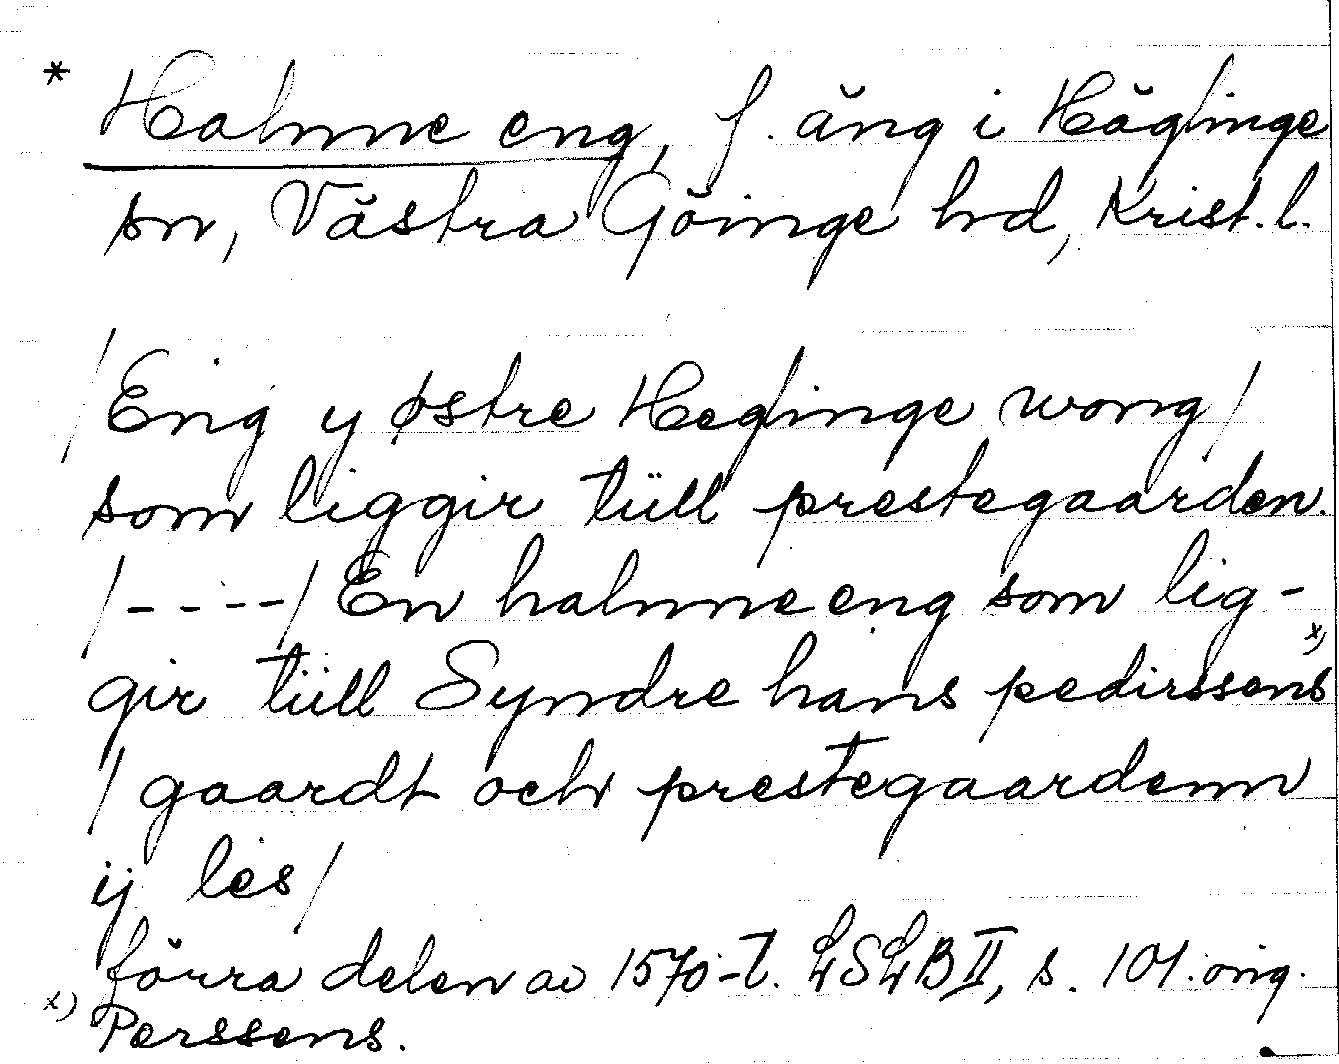 * Halmne eng, f. äng i Häglinge
sn, Västra Göinge hd, Krist. l.
/Eng y østre Heglinge wong/
som liggir tüll prestegaarden.
/----/ En halmne eng som lig-
gir tüll Syndre hans pedirssens x)
/ gaardt och prestegaardenn
ij les/
förra delen av 1570-t. LSLB II, s. 101. orig.
x) Perssens.